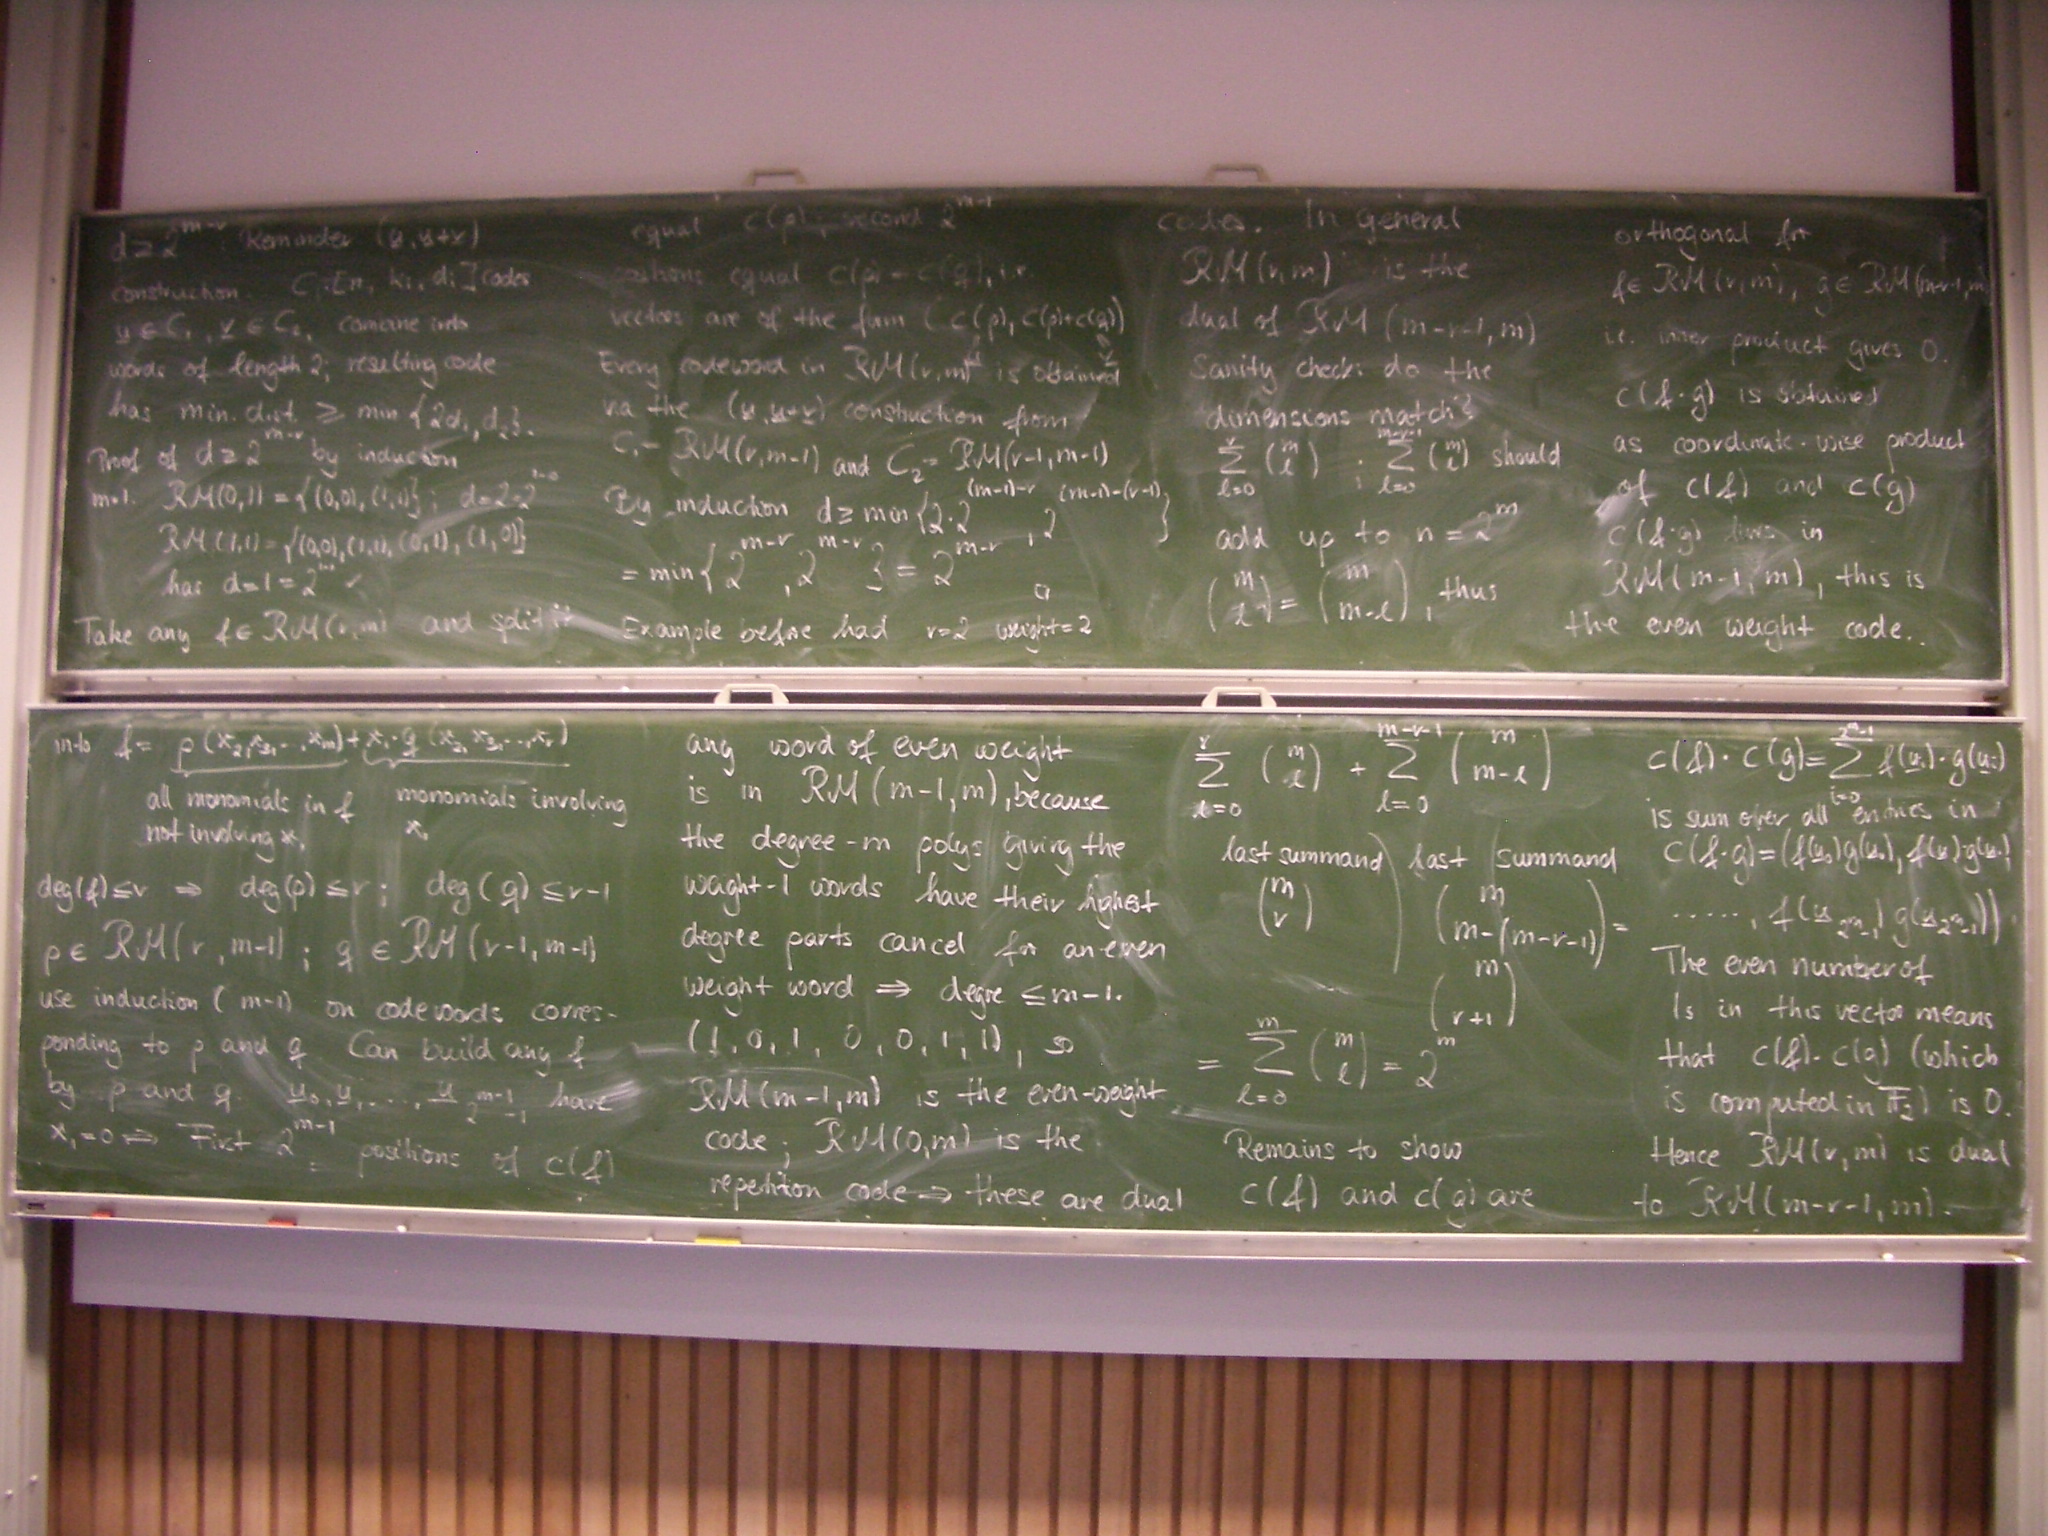 d ≥ 2^{m-r} Reminder (u, u+v)
construction. C_i [n, k_i, d_i] codes
u ∈ C_1, v ∈ C_2, combine into
words of length 2; resulting code
has min. dist. ≥ min {2d_1, d_2}.
Proof of d ≥ 2^{m-r} by induction
m=1. RM(0,1) = {(0,0), (1,1)}; d=2=2^{1-0}
RM(1,1) = {(0,0), (1,1), (0,1), (1,0)}
has d=1=2^{1-1} ✓
Take any f ∈ RM(r,m) and split it
into f = p(x_2, x_3, ..., x_m) + x_1 · q(x_2, x_3, ..., x_r)
all monomials in f monomials involving
not involving x_1 x_1
deg(f) ≤ r ⇒ deg(p) ≤ r ; deg(q) ≤ r-1
p ∈ RM(r, m-1) ; q ∈ RM(r-1, m-1)
use induction (m-1) on codewords corres-
ponding to p and q. Can build any f
by p and q. u_0, u_1, ..., u_{2^{m-1}-1} have
x_1 = 0 ⇒ First 2^{m-1} positions of c(f)
equal c(p); second 2^{m-1}
positions equal c(p) + c(q), i.e.
vectors are of the form (c(p), c(p)+c(q))
Every codeword in RM(r,m) is obtained
via the (u, u+v) construction from
C_1 = RM(r, m-1) and C_2 = RM(r-1, m-1)
By induction d ≥ min {2·2^{(m-1)-r}, 2^{(m-1)-(r-1)}}
= min {2^{m-r}, 2^{m-r}} = 2^{m-r} □
Example before had r=2 weight=2
any word of even weight
is in RM(m-1, m), because
the degree-m polys giving the
weight-1 words have their highest
degree parts cancel for an even
weight word ⇒ degre ≤ m-1.
(1, 0, 1, 0, 0, 1, 1), so
RM(m-1, m) is the even-weight
code; RM(0,m) is the
repetition code ⇒ these are dual
codes. In general
RM(r,m) is the
dual of RM(m-r-1, m)
Sanity check: do the
dimensions match?
\sum_{l=0}^{r} \binom{m}{l} ; \sum_{l=0}^{m-r-1} \binom{m}{l} should
add up to n = 2^m
\binom{m}{l} = \binom{m}{m-l}, thus
\sum_{l=0}^{r} \binom{m}{l} + \sum_{l=0}^{m-r-1} \binom{m}{m-l}
last summand last summand
\binom{m}{r} \binom{m}{m-(m-r-1)} =
\binom{m}{r+1}
= \sum_{l=0}^{m} \binom{m}{l} = 2^m
Remains to show
c(f) and c(g) are
orthogonal for
f ∈ RM(r,m), g ∈ RM(m-r-1, m)
i.e. inner product gives 0.
c(f·g) is obtained
as coordinate-wise product
of c(f) and c(g)
c(f·g) lives in
RM(m-1, m), this is
the even weight code..
c(f) · c(g) = \sum_{i=0}^{2^m-1} f(u_i) · g(u_i)
is sum over all entries in
c(f·g) = (f(u_0)g(u_0), f(u_1)g(u_1),
......, f(u_{2^m-1}) g(u_{2^m-1}))
The even number of
1s in this vector means
that c(f) · c(g) (which
is computed in F_2) is 0.
Hence RM(r,m) is dual
to RM(m-r-1, m).